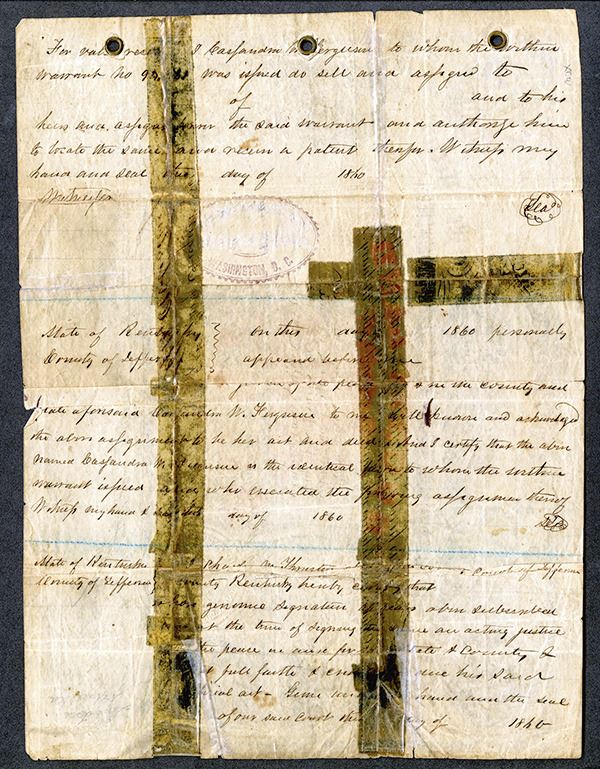 For valu rece I Cassandra W. Ferguson to whom the within
warrant no 9 was issued do sell and assign to
of and to his
heirs and assigns the said warrant and authorize him
to locate the same and receive a patent therefor. Witness my
hand and seal this day of 1860
Seal
WASHINGTON, D. C.
State of Kentucky on this day 1860 personally
County of Jefferson appeared before me
peace in the county and
State aforesaid Cassandra W. Ferguson to me well known and acknowledged
the above assignment to be her act and deed and I certify that the above
named Cassandra W. Ferguson is the identical person to whom the within
warrant issued and who executed the foregoing assignment thereof
Witness my hand & seal this day of 1860
State of Kentucky Court of Jefferson
County of Jefferson County Kentucky hereby certify that
genuine signature appears above subscribed
at the time of signing the same an acting justice
the peace in and for State & County &
full faith & his said
act - Given hand and the seal
of our said Court this day of 1860